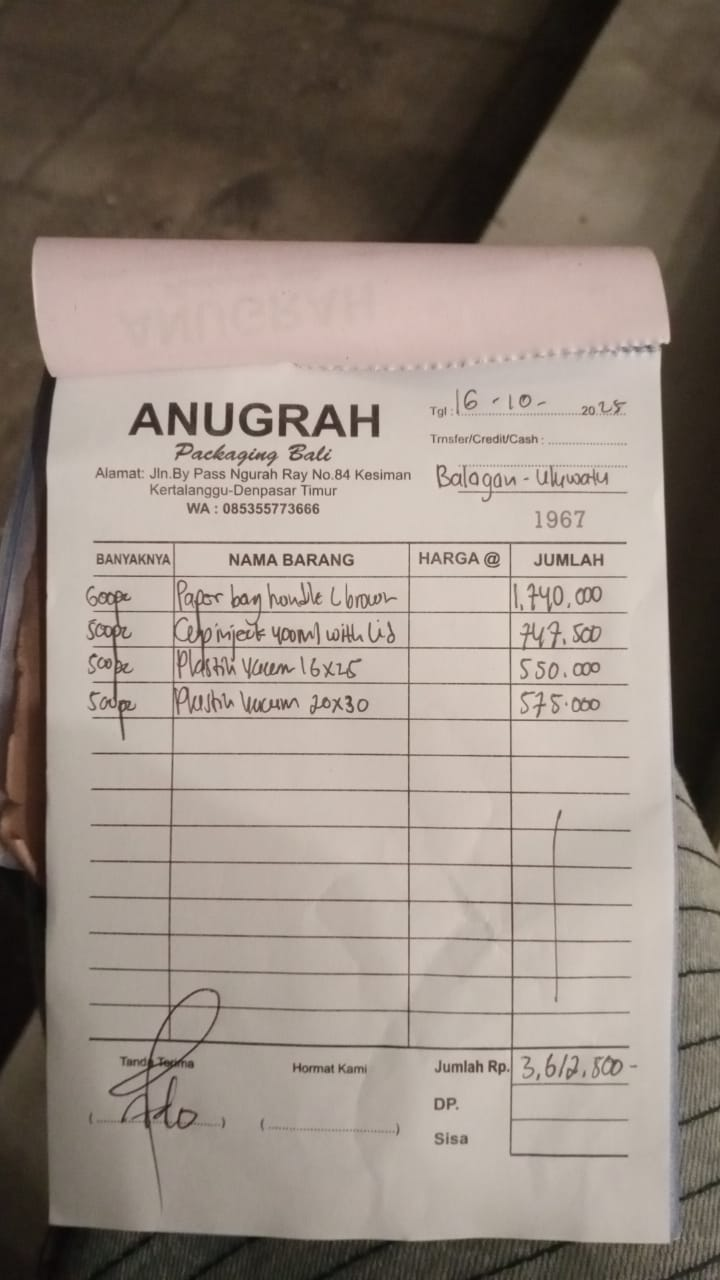 ANUGRAH
Packaging Bali
Alamat: Jln.By Pass Ngurah Ray No.84 Kesiman
Kertalanggu-Denpasar Timur
WA : 085355773666
Tgl : 16 - 10 - 2025
Trnsfer/Credit/Cash :
Balagan - Uluwatu
1967
BANYAKNYA NAMA BARANG HARGA @ JUMLAH
600pc Paper bag handle L brown 1,740.000
500pc Cup injeck 400ml with Lid 747.500
500pc Plastik Vacum 16x25 550.000
500pc Plastik Vacum 20x30 575.000
Tanda Terima Hormat Kami Jumlah Rp. 3,612,500-
DP.
Sisa
(..................) (..................)